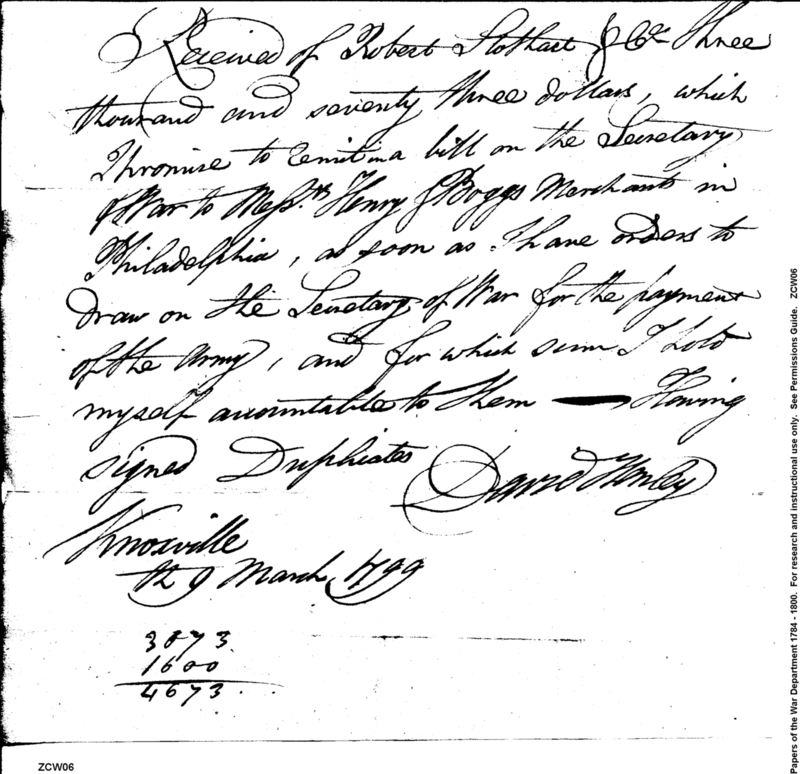 Received of Robert Stothart & Co. Three
thousand and seventy three dollars, which
I promise to remit in a bill on the Secretary
of War to Messrs. Henry & Boggs Merchants in
Philadelphia, as soon as I have orders to
draw on the Secretary of War for the payment
of the Army, and for which sum I hold
myself accountable to them — Having
signed Duplicates
David Henley
Knoxville
th 9 March, 1799
3073.
1600
4673.
ZCW06
Papers of the War Department 1784 - 1800. For research and instructional use only. See Permissions Guide. ZCW06